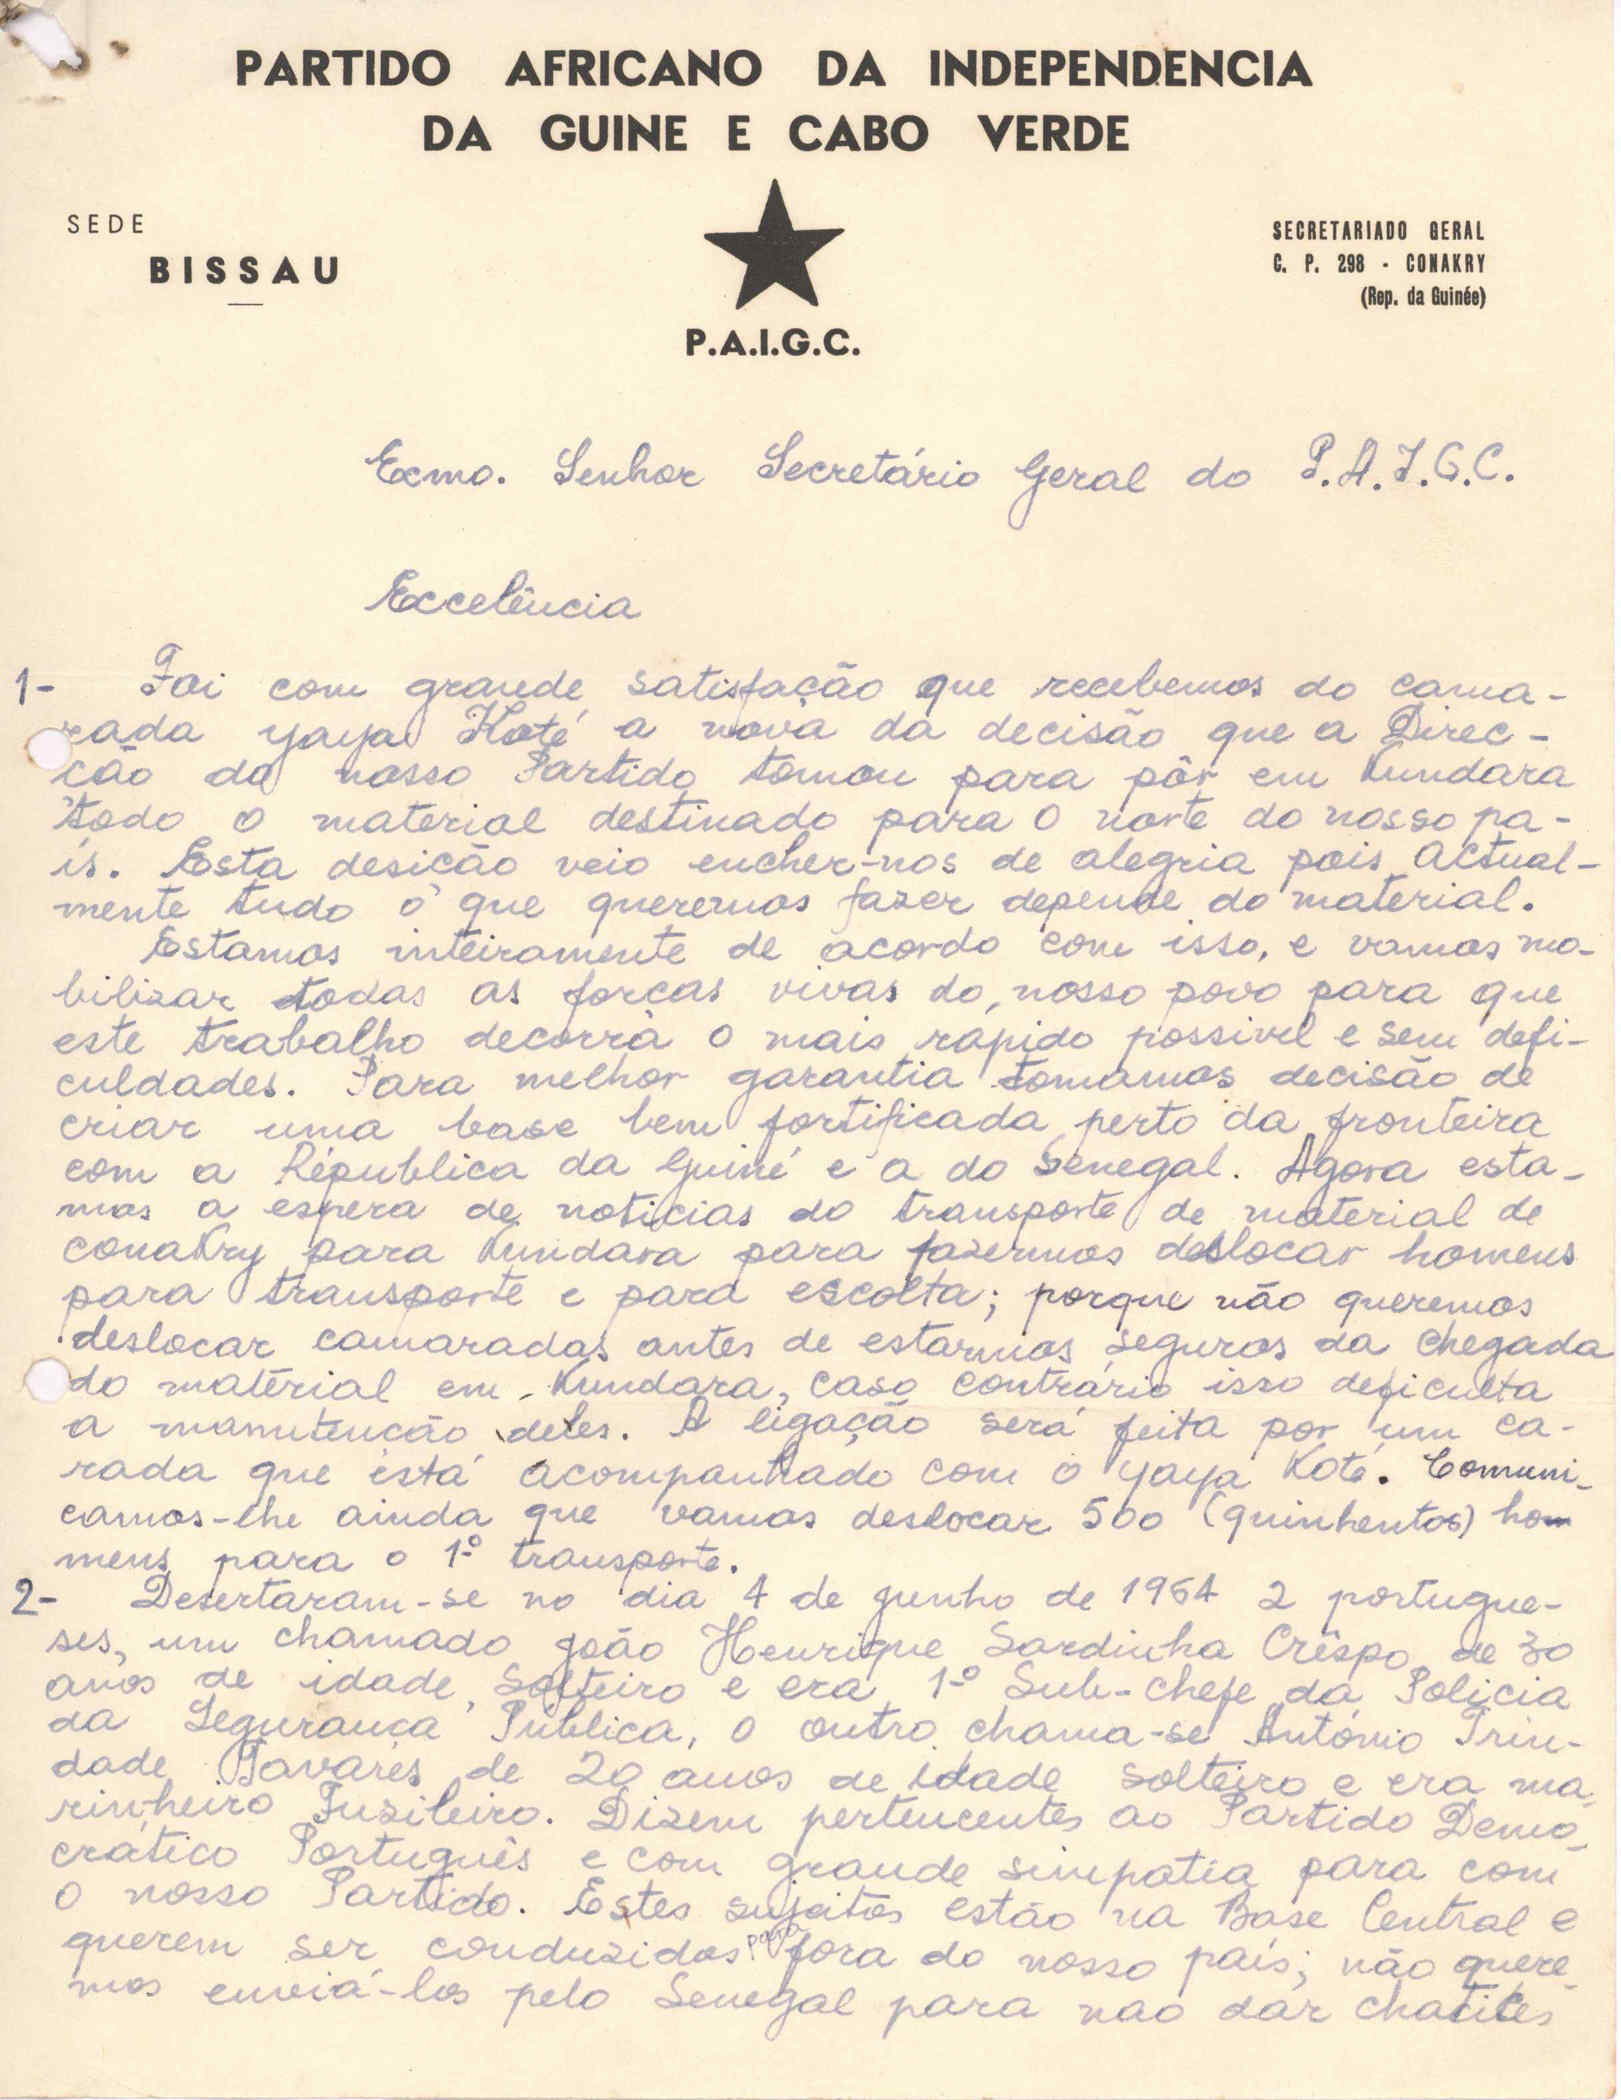 PARTIDO AFRICANO DA INDEPENDENCIA
DA GUINE E CABO VERDE
SEDE
BISSAU
SECRETARIADO GERAL
C. P. 298 - CONAKRY
(Rep. da Guinée)
P.A.I.G.C.
Excmo. Senhor Secretário Geral do P.A.I.G.C.
Excelência
1- Foi com grande satisfação que recebemos do cama-
rada Yaya Koté a nova da decisão que a Direc-
ção do nosso Partido tomou para pôr em Kundara
todo o material destinado para o norte do nosso pa-
ís. Esta desição veio encher-nos de alegria pois actual-
mente tudo o que queremos fazer depende do material.
Estamos inteiramente de acordo com isso, e vamos mo-
bilizar todas as forças vivas do nosso povo para que
este trabalho decorra o mais rápido possivel e sem defi-
culdades. Para melhor garantia tomamos decisão de
criar uma base bem fortificada perto da fronteira
com a República da Guiné e a do Senegal. Agora esta-
mos a espera de noticias do transporte de material de
Conakry para Kundara para fazermos deslocar homens
para transporte e para escolta; porque não queremos
deslocar camaradas antes de estarmos seguros da chegada
do material em Kundara, caso contrário isso deficulta
a manutenção deles. A ligação será feita por um ca-
rada que está acompanhado com o Yaya Koté. Comuni-
camos-lhe ainda que vamos deslocar 500 (quinhentos) ho
mens para o 1º transporte.
2- Desertaram-se no dia 4 de junho de 1964 2 portugue-
ses, um chamado João Henrique Sardinha Crêspo de 30
anos de idade, solteiro e era 1º Sub-chefe da Policia
da Segurança Pública, o outro chama-se António Trin-
dade Tavares de 20 anos de idade solteiro e era ma-
rinheiro Fuzileiro. Dizem pertencentes ao Partido Demo-
crático Português e com grande simpatia para com
o nosso Partido. Estes sujeitos estão na Base Central e
querem ser conduzidos para fora do nosso país; não quere-
mos enviá-los pelo Senegal para nao dar